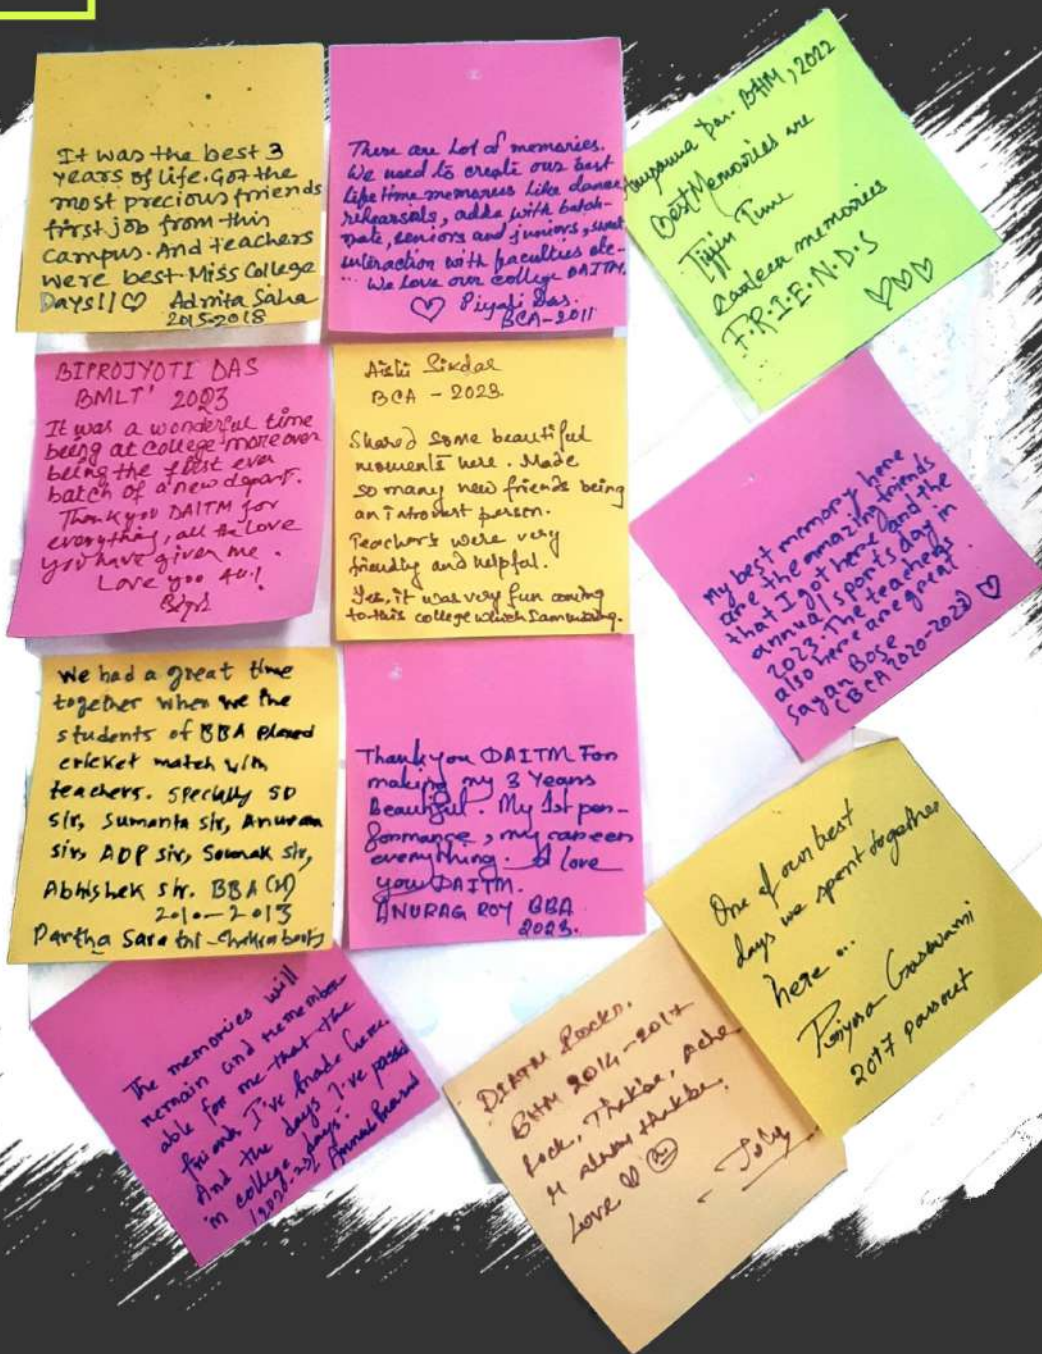 It was the best 3
years of life. Got the
most precious friends
first job from this
campus. And teachers
were best. Miss College
Days!! ♡ Admita Saha
2015-2018
There are Lot of memories.
We used to create our best
life time memories like dance
rehearsals, adda with batch-
mate, seniors and juniors, sweet
interaction with faculties etc-
... We Love our college DAITM.
♡ Piyali Das.
BCA-2011
Das. BHM, 2022
Best Memories are
Tiffin Time
Canteen memories
F.R.I.E.N.D.S
♡♡♡
BIPROJYOTI DAS
BMLT' 2023
It was a wonderful time
being at college moreover
being the first ever
batch of a new depart.
Thank you DAITM for
everything, all the Love
you have given me.
Love you All!
Aishi Sikdar
BCA - 2023
Shared some beautiful
moments here. Made
so many new friends being
an introvert person.
Teachers were very
friendly and helpful.
Yes, it was very fun coming
to this college which I am missing.
My best memory here
are the amazing friends
that I got here and the
annual sports day in
2023. The teachers
also here are great
Sayan Bose ♡
(BCA 2020-2023)
We had a great time
together when we the
students of BBA played
cricket match with
teachers. Specially SD
sir, Sumanta sir, Anuran
sir, ADP sir, Sounak sir,
Abhishek sir. BBA (H)
2010-2013
Partha Sarathi Chakraborty
Thank you DAITM For
making my 3 Years
Beautiful. My 1st per-
formance, my career
everything. I love
you DAITM.
ANURAG ROY BBA
2023.
One of our best
days we spent together
here ...
Goswami
2017 passout
The memories will
remain and remember
able for me that the
friends I've made here.
And the days I've passed
in college days.
Prasad
DIATM Rocks.
BHM 2014-2017
Rock, Thakbe, ache
r always thakbe.
Love ♡